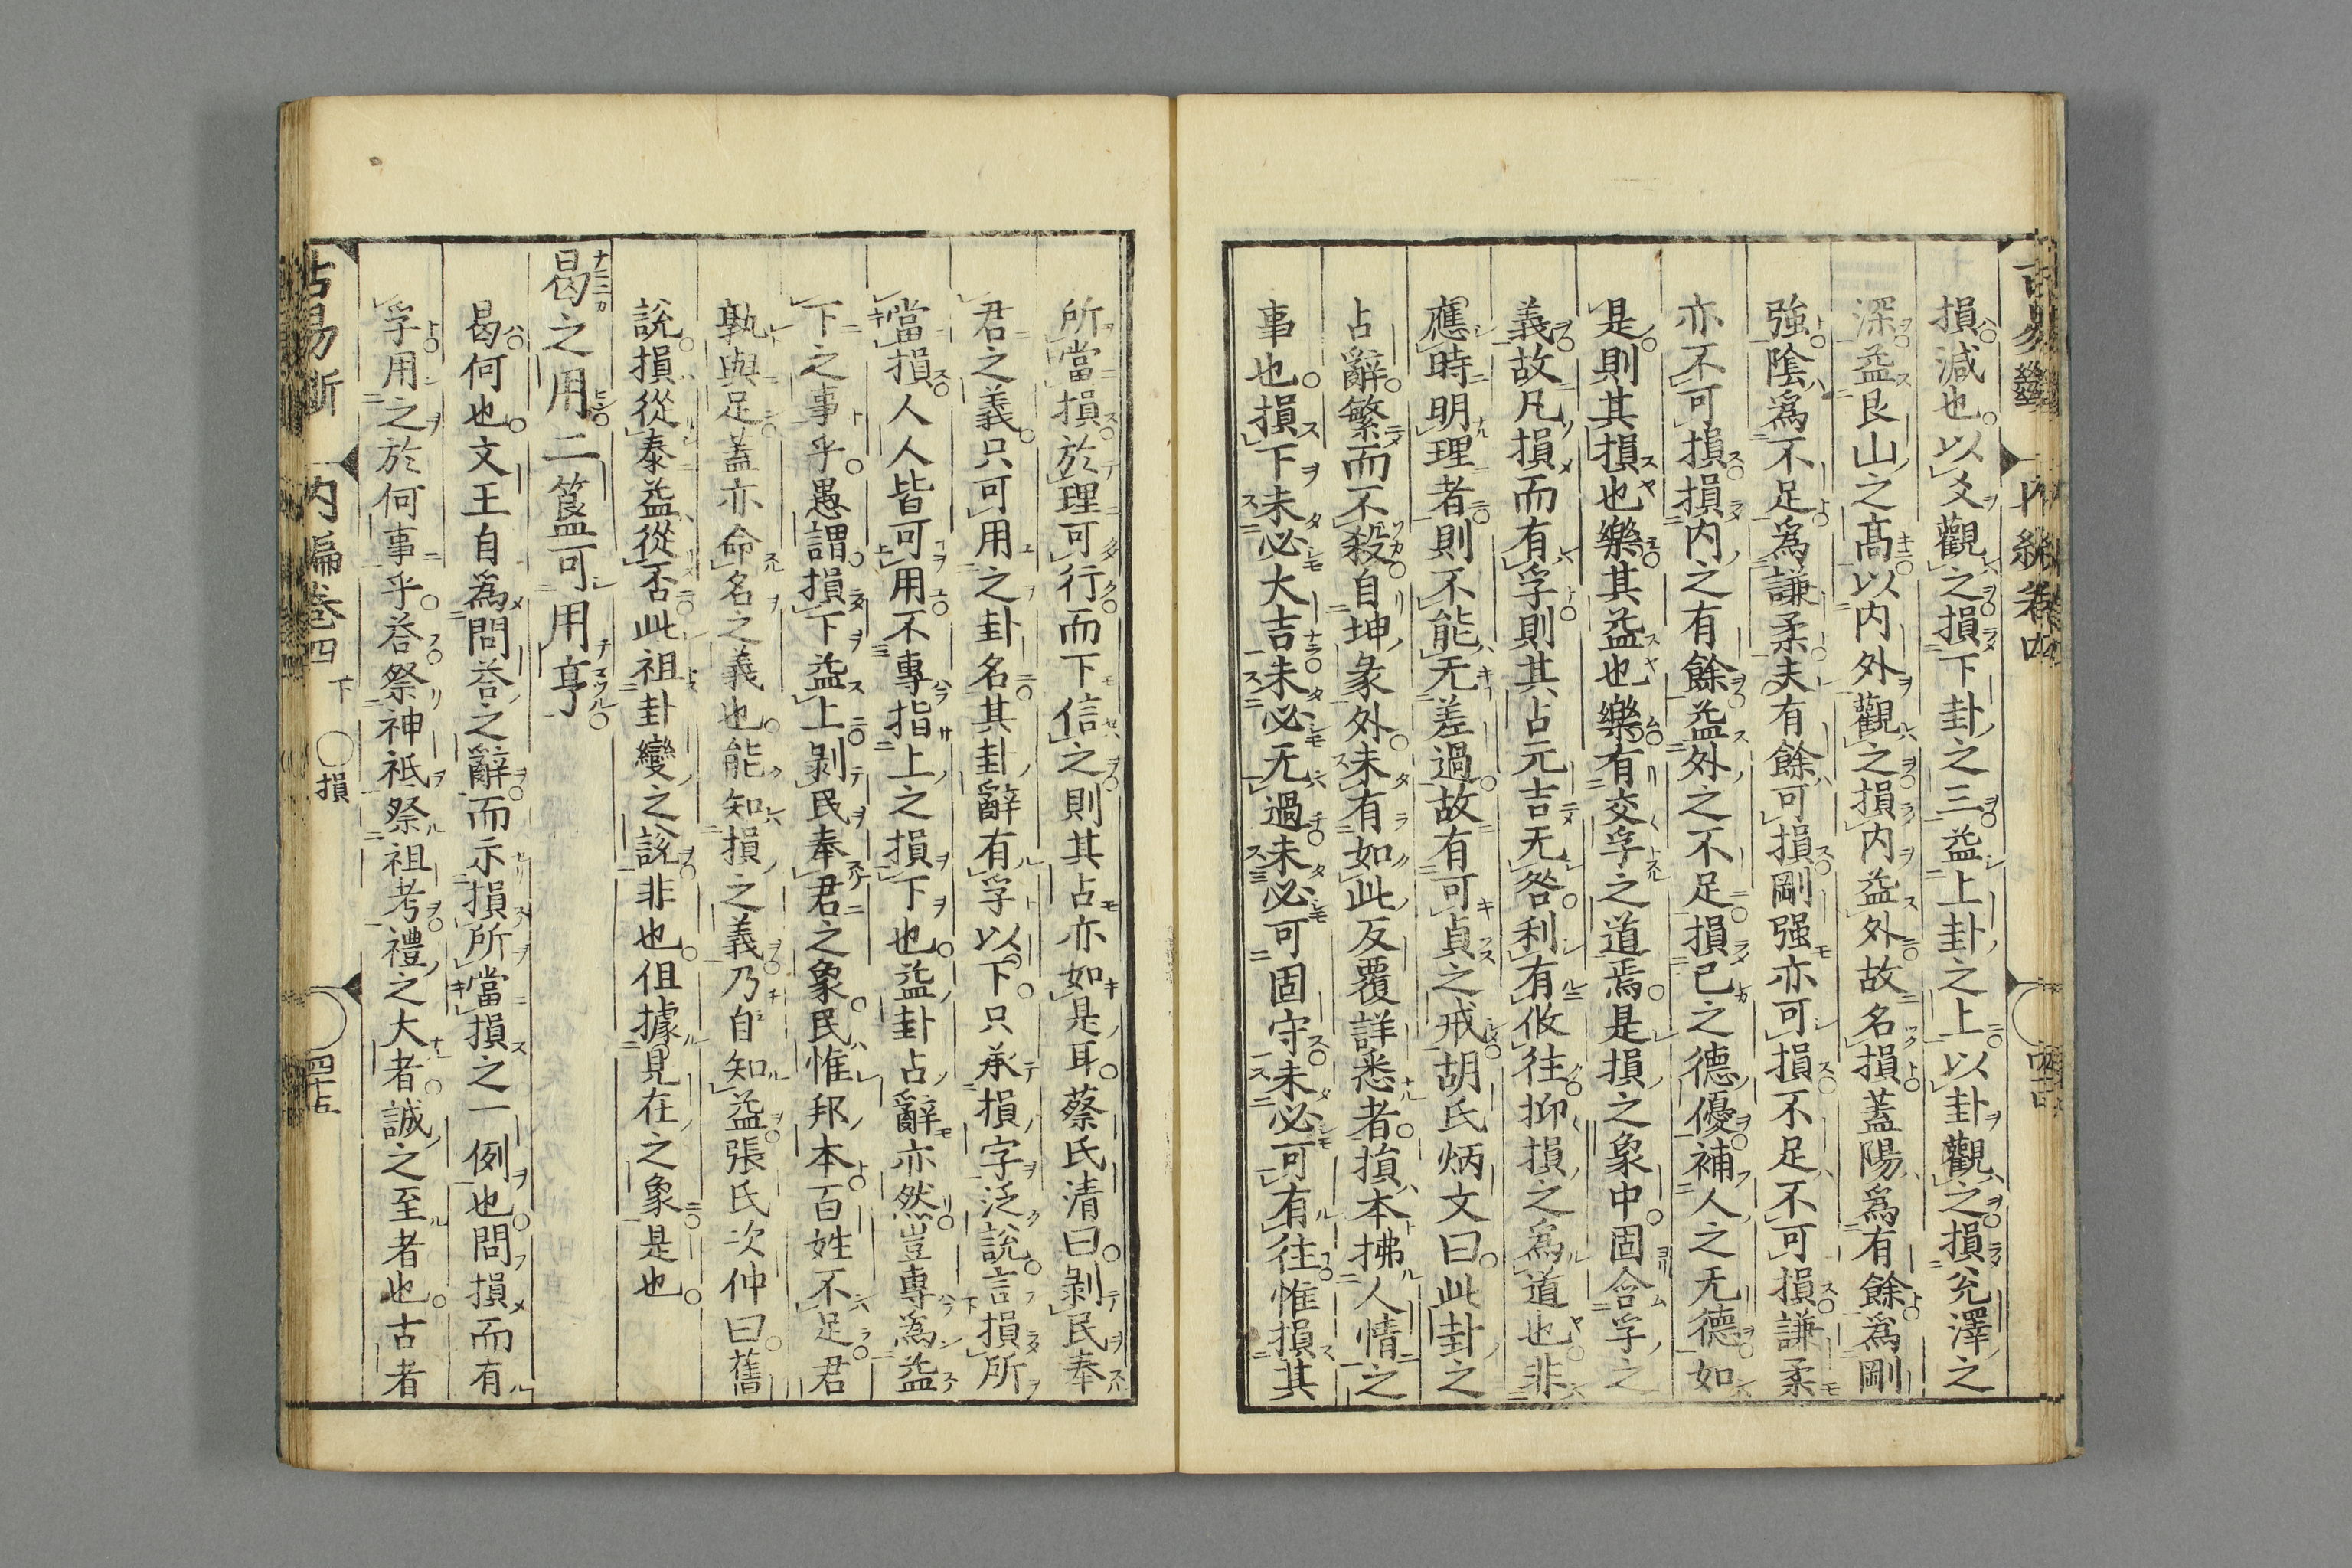 損減也以爻觀之損下卦之三益上卦之上以卦觀之損兊澤之
深益艮山之高以内外觀之損内益外故名損蓋陽爲有餘爲剛
強陰爲不足爲謙柔夫有餘可損剛强亦可損不足不可損謙柔
亦不可損損内之有餘益外之不足損已之德優補人之无德如
是則其損也樂其益也樂有交孚之道焉是損之象中固含孚之
義故凡損而有孚則其占元吉无咎利有攸往抑損之爲道也非
應時明理者則不能无差過故有可貞之戒胡氏炳文曰此卦之
占辭繁而不殺自坤彖外未有如此反覆詳悉者損本拂人情之
事也損下未必大吉未必无過未必可固守未必可有往惟損其
所當損於理可行而下信之則其占亦如是耳蔡氏清曰剝民奉
君之義只可用之卦名其卦辭有孚以下只承損字泛說言損所
當損人人皆可用不專指上之損下也益卦占辭亦然豈專爲益
下之事乎愚謂損下益上剝民奉君之象民惟邦本百姓不足君
孰與足蓋亦命名之義也能知損之義乃自知益張氏次仲曰舊
說損從泰益從否此祖卦變之說非也伹據見在之象是也
曷之用二簋可用亨
曷何也文王自爲問荅之辭而示損所當損之一例也問損而有
孚用之於何事乎荅祭神祇祭祖考禮之大者誠之至者也古者
古易斷 内編卷四 下 ○損 四十五